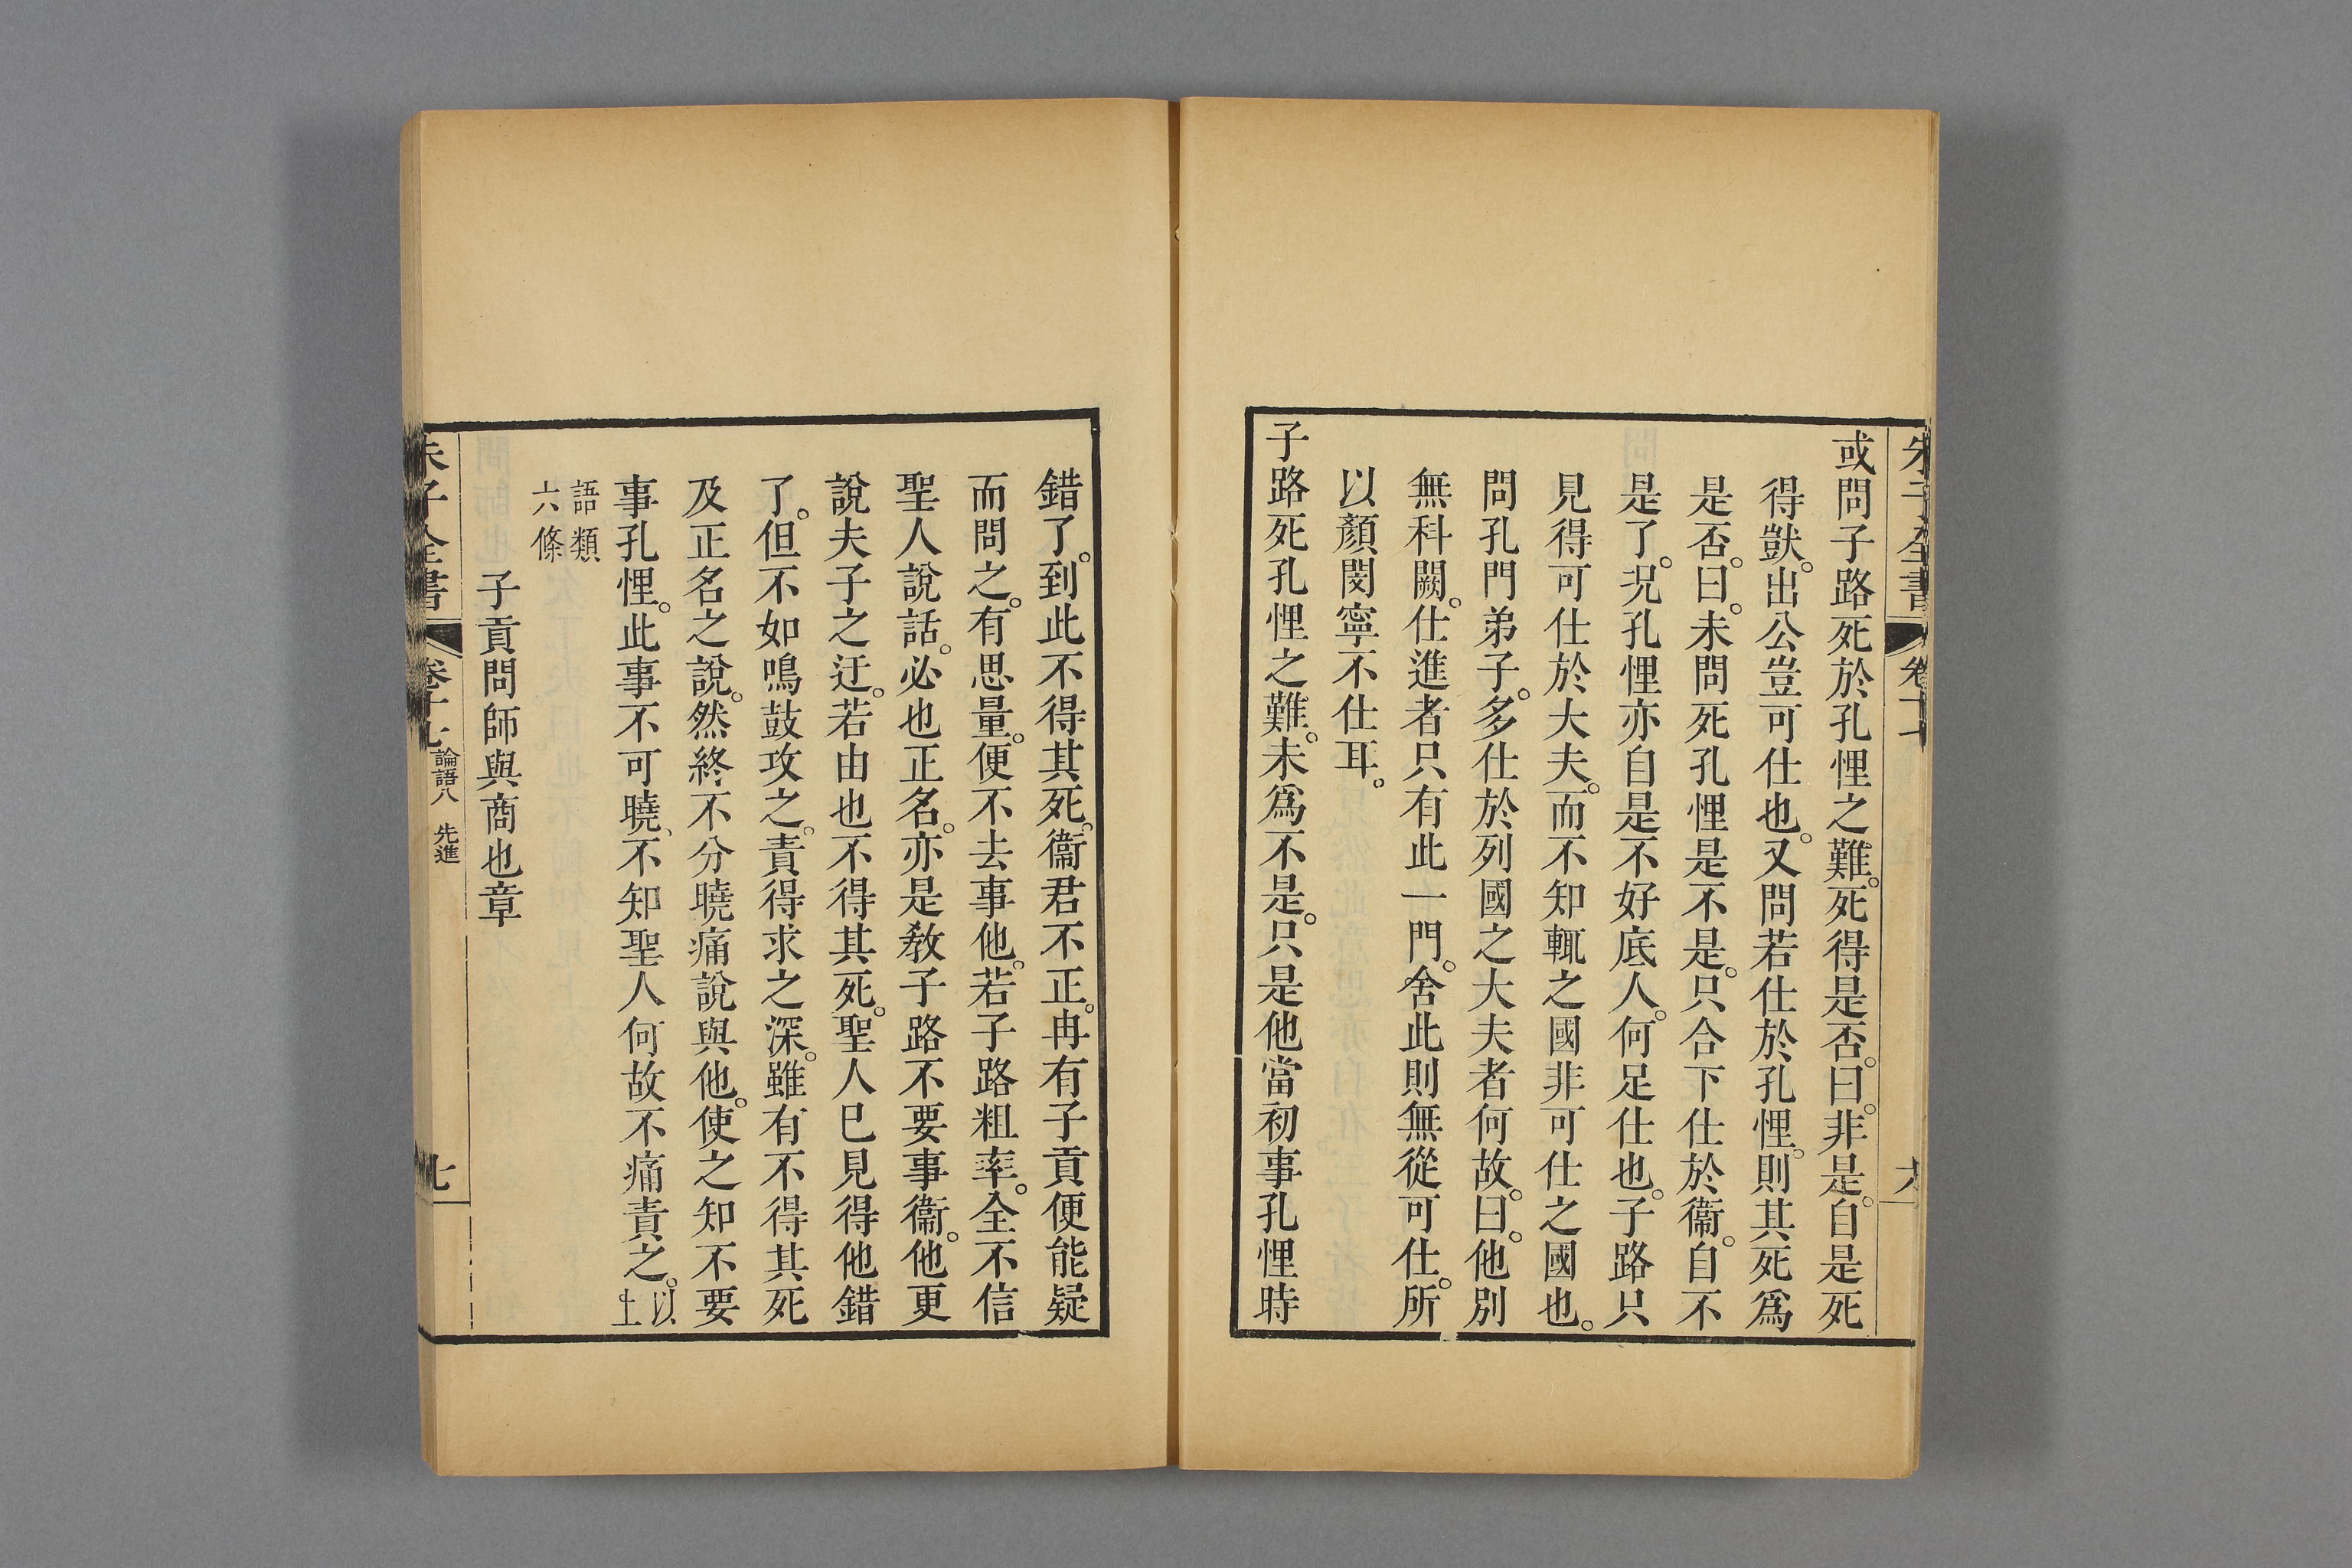 朱子全書 卷十七 六
或問子路死於孔悝之難。死得是否。曰。非是。自是死
得獃。出公豈可仕也。又問若仕於孔悝。則其死爲
是否。曰。未問死孔悝是不是。只合下仕於衞。自不
是了。況孔悝亦自是不好底人。何足仕也。子路只
見得可仕於大夫。而不知輒之國非可仕之國也。
問孔門弟子。多仕於列國之大夫者何故。曰。他別
無科闕。仕進者只有此一門。舍此則無從可仕。所
以顏閔寧不仕耳。
子路死孔悝之難。未爲不是。只是他當初事孔悝時
錯了。到此不得其死。衞君不正。冉有子貢便能疑
而問之。有思量。便不去事他。若子路粗率。全不信
聖人說話。必也正名。亦是敎子路不要事衞。他更
說夫子之迂。若由也不得其死。聖人巳見得他錯
了。但不如鳴鼓攻之。責得求之深。雖有不得其死
及正名之說。然終不分曉痛說與他。使之知不要
事孔悝。此事不可曉、不知聖人何故不痛責之。以
上
語類
六條
子貢問師與商也章
朱子全書 卷十七 論語八 先進 七